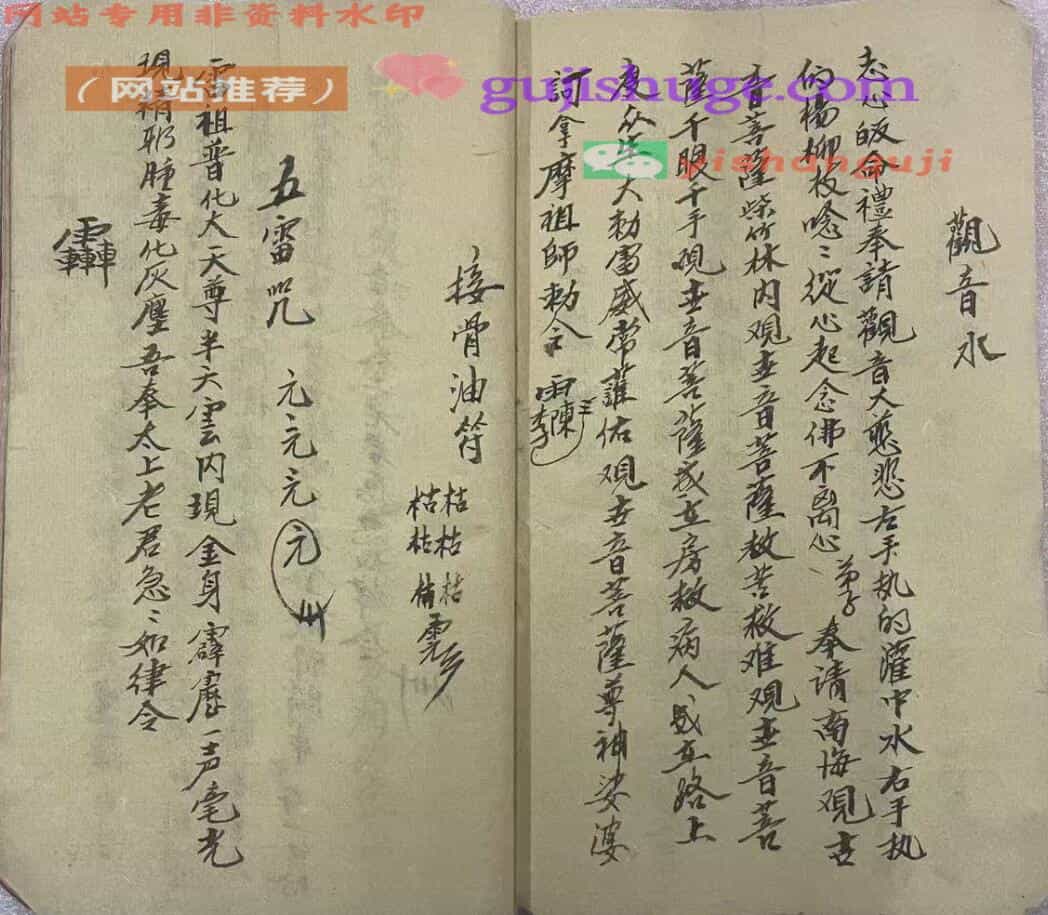 网站专用非资料水印
(网站推荐)
gujishuge.com
yishanguji
觀音水
志心皈命禮奉請觀音大慈悲左手执的灌中水右手执
的楊柳枝唸〻從心起念佛不离心 弟子 奉请南海观世
音菩薩紫竹林内观世音菩薩救苦救难观世音菩
薩千眼千手观世音菩薩或立房救病人或立路上
度众生大勅雷威常護佑观世音菩薩尊神娑婆
訶拿摩祖師勅令
接骨油符
枯枯
枯枯
枯
五雷咒 元元元元
雷祖普化大天尊半天雲内現金身霹靂一声毫光
現 邪腫毒化灰塵吾奉太上老君急〻如律令